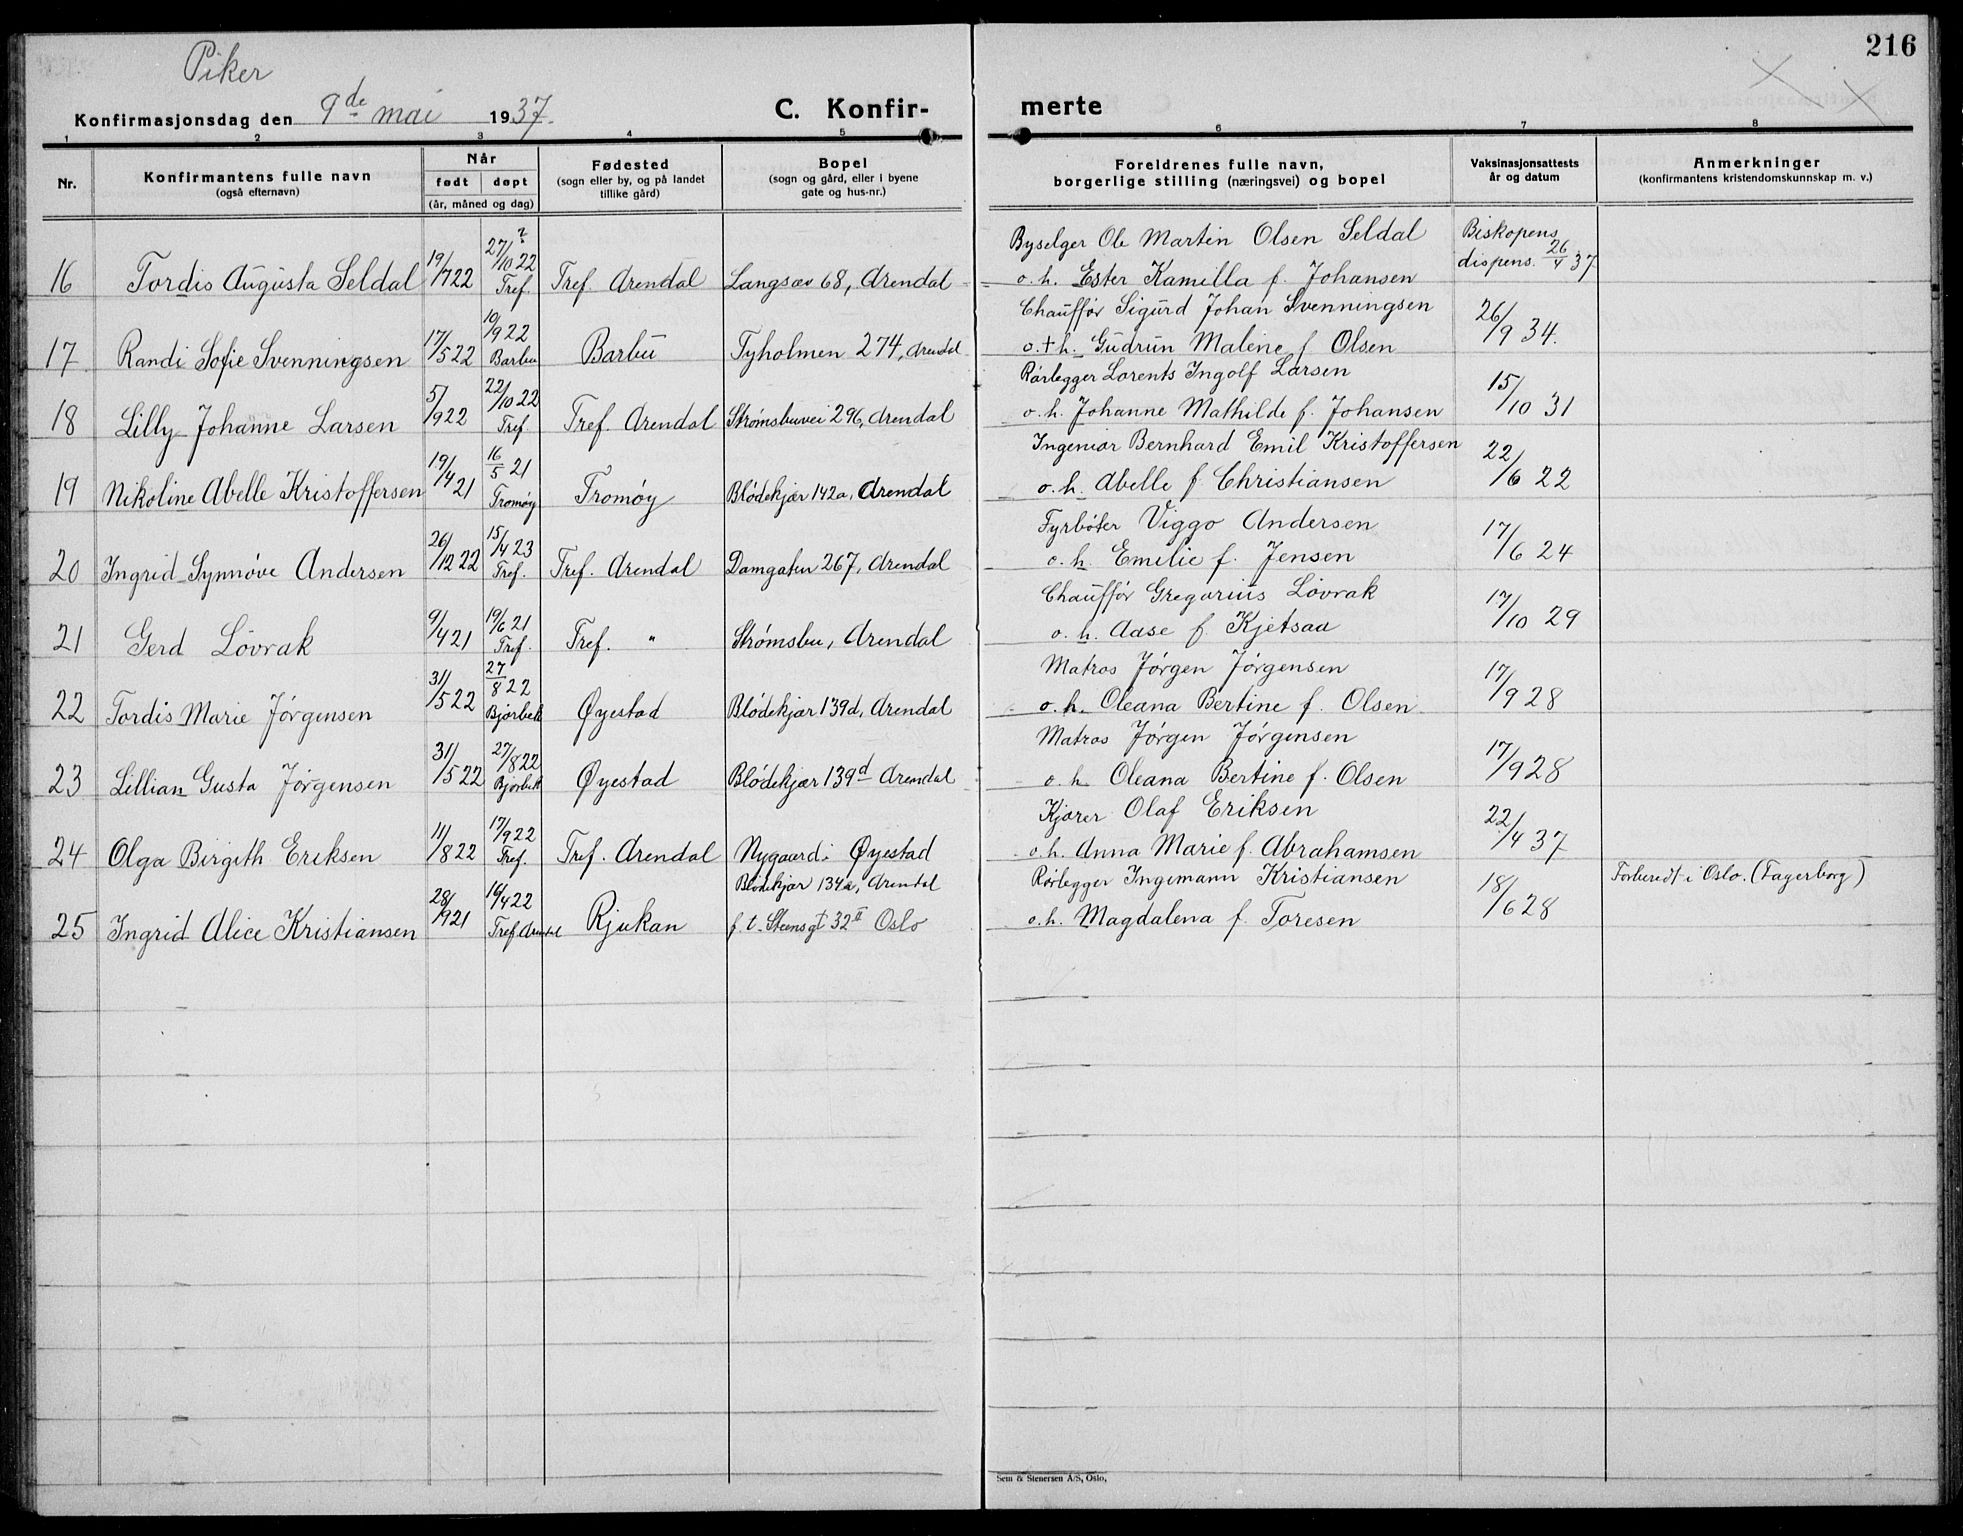 216
Piker
Konfirmasjonsdag den 9de mai 1937. C. Konfir- merte
1 2 3 4 5 6 7 8
Nr. Konfirmantens fulle navn (også efternavn) Når født døpt (år, måned og dag) Fødested (sogn eller by, og på landet tillike gård) Bopel (sogn og gård, eller i byene gate og hus-nr.) Foreldrenes fulle navn, borgerlige stilling (næringsvei) og bopel Vaksinasjonsattests år og datum Anmerkninger (konfirmantens kristendomskunnskap m. v.)
16 Tordis Augusta Seldal 19/7 22 27/10 22 ? Tref. Tref. Arendal Langsæv 68, Arendal Byselger Ole Martin Olsen Seldal Biskopens
o. h. Ester Kamilla f. Johansen dispens. 26/4 37
17 Randi Sofie Svenningsen 17/5 22 10/9 22 Barbu Barbu Tyholmen 274, Arendal Chauffør Sigurd Johan Svenningsen 26/9 34.
o. + h. Gudrun Malene f. Olsen
18 Lilly Johanne Larsen 5/9 22 22/10 22 Tref Tref. Arendal Strømsbuvei 296, Arendal Rørlegger Lorents Ingolf Larsen 15/10 31
o. h. Johanne Mathilde f. Johansen
19 Nikoline Abelle Kristoffersen 19/4 21 16/5 21 Tromøy Tromøy Blødekjær 142a, Arendal Ingeniør Bernhard Emil Kristoffersen 22/6 22
o. h. Abelle f. Christiansen
20 Ingrid Synnøve Andersen 26/12 22 15/4 23 Tref. Tref. Arendal Damgaten 267, Arendal Fyrbøter Viggo Andersen 17/6 24
o. h. Emilie f. Jensen
21 Gerd Løvrak 9/4 21 19/6 21 Tref. Tref. " Strømsbu, Arendal Chauffør Gregarius Løvrak 17/10 29
o. h. Aase f. Kjetsaa
22 Tordis Marie Jørgensen 31/5 22 27/8 22 Bjorbek Øyestad Blødekjær 139d, Arendal Matros Jørgen Jørgensen 17/9 28
o. h. Oleana Bertine f. Olsen
23 Lillian Gusta Jørgensen 31/5 22 27/8 22 Bjorbek Øyestad Blødekjær 139d Arendal Matros Jørgen Jørgensen 17/9 28
o. h. Oleana Bertine f. Olsen
24 Olga Birgith Eriksen 11/8 22 17/9 22 Tref. Tref. Arendal Nygaard i Øyestad Kjører Olaf Eriksen 22/4 37
o. h. Anna Marie f. Abrahamsen
25 Ingrid Alice Kristiansen 28/9 21 16/4 22 Tref Arendal Rjukan Blødekjær 134a, Arendal Rørlegger Ingemann Kristiansen 18/6 28 Forberedt i Oslo. (Fagerborg)
f. t. Steensgt 32 II Oslo o. h. Magdalena f. Toresen
Sem & Stenersen A/S, Oslo,